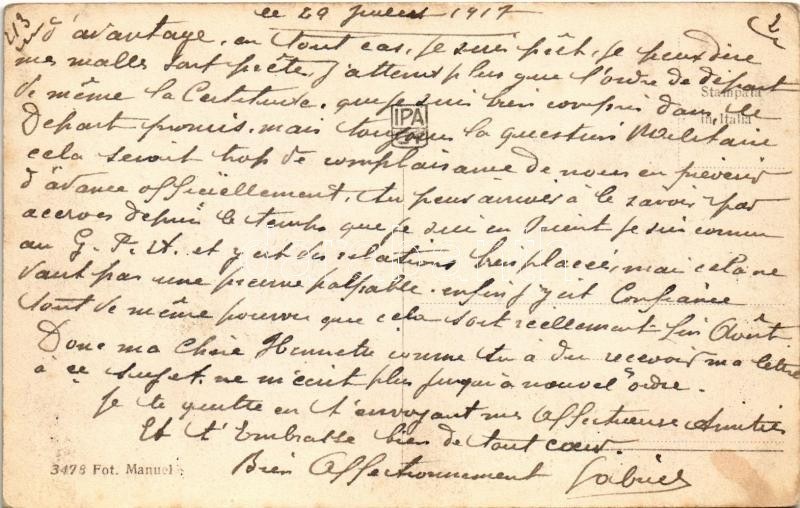 213
2
le 29 Juillet 1917
d'avantage, en tout cas, je suis prêt, je peux dire
mes malles sont prêtes j'attens plus que l'ordre de départ
de même la Certitude, que je suis bien compris dans le
Départ promis. mais toujours la question Militaire
cela serait trop de complaisance de nous en prévenir
d'avance officiellement, tu peux arriver à le savoir par
accroc depuis le temps que je suis en Orient je suis connu
au G. P. A. et y ait des relations bien placées, mais cela ne
vaut pas une preuve palpable. enfin j'y ait Confiance
tout de même pourvu que cela soit réellement fin Août.
Donc ma Chère Henriette comme tu à du recevoir ma lettre
à ce sujet. ne m'écrit plus jusqu'à nouvel ordre.
Je te quitte en t'envoyant mes Affectueuse Amitiés
Et t'Embrasse bien de tout coeur.
Bien Affectionnement Gabriel
Stampata
in Italia
IPA
3478 Fot. Manuel